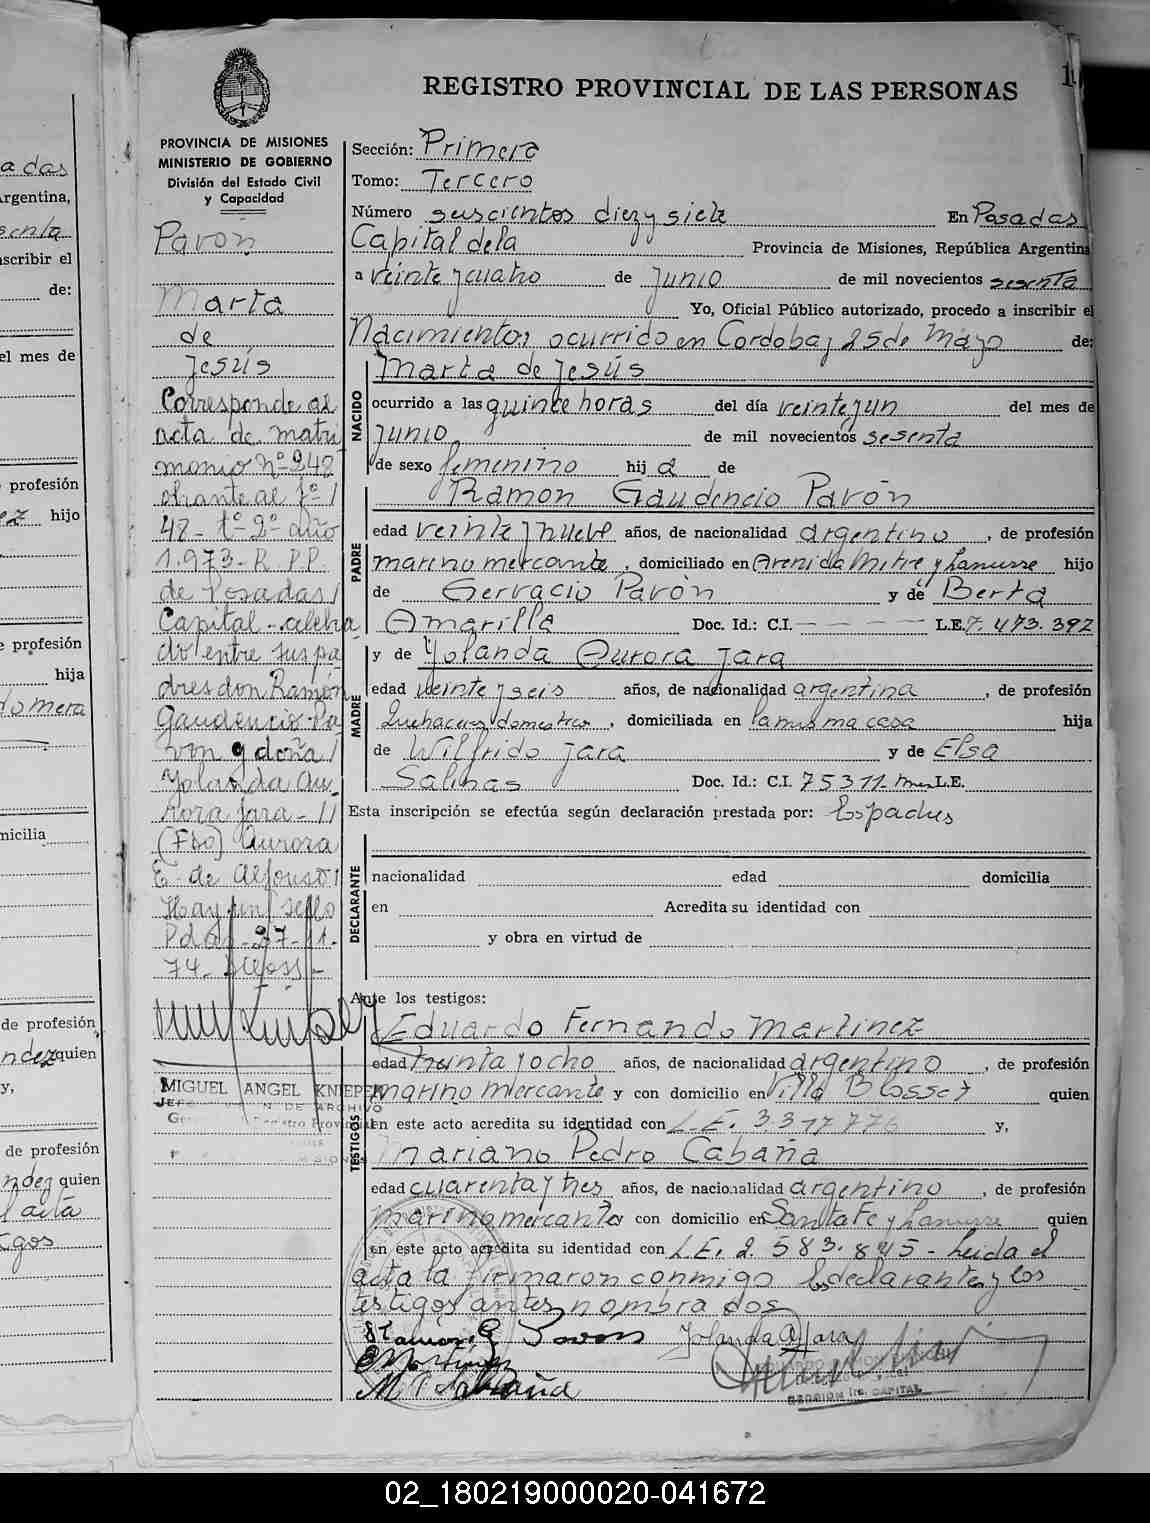 REGISTRO PROVINCIAL DE LAS PERSONAS
PROVINCIA DE MISIONES
MINISTERIO DE GOBIERNO
División del Estado Civil
y Capacidad
Pavon
Marta
de
Jesús
Corresponde al
acta de matri
monio Nº 248
obrante al fº /
48 - tº 2º año
1.973 - R. P. P.
de Posadas /
Capital - celebra
do entre sus pa
dres don Ramón
Gaudencio Pa
von y doña /
Yolanda Au
rora Jara - //
(Fdo) Aurora
E. de
Hay un sello
Pdas - 27 - 11 -
74 -
MIGUEL ANGEL KNIEPER
Sección: Primera
Tomo: Tercero
Número suscientos diez y siete En Posadas
Capital de la Provincia de Misiones, República Argentina
a veinte y cuatro de Junio de mil novecientos sesenta
Yo, Oficial Público autorizado, procedo a inscribir el
Nacimiento ocurrido en Cordoba y 25 de Mayo de:
NACIDO
Marta de Jesús
ocurrido a las quince horas del día veinte y un del mes de
Junio de mil novecientos sesenta
de sexo femenino hij a de
PADRE
Ramon Gaudencio Pavón
edad veinte y nueve años, de nacionalidad argentino, de profesión
marino mercante, domiciliado en Avenida Mitre y Lanusse hijo
de Gervacio Pavón y de Berta
Amarilla Doc. Id.: C.I. - - - - L.E. 7.473.392
MADRE
y de Yolanda Aurora Jara
edad veinte y seis años, de nacionalidad argentina, de profesión
Quehaceres domesticos, domiciliada en la misma casa hija
de Wilfrido Jara y de Elsa
Salinas Doc. Id.: C.I. 75311 - Mnes L.E.
Esta inscripción se efectúa según declaración prestada por: Los padres
DECLARANTE
nacionalidad edad domicilia
en Acredita su identidad con
y obra en virtud de
Ante los testigos:
TESTIGOS
Eduardo Fernando Martinez
edad treinta y ocho años, de nacionalidad argentino, de profesión
marino mercante y con domicilio en Villa Blosset quien
en este acto acredita su identidad con L.E. 3.317.776 y,
Mariano Pedro Cabaña
edad cuarenta y tres años, de nacionalidad argentino, de profesión
marino mercante con domicilio en Santa Fe y Lanusse quien
en este acto acredita su identidad con L.E. 2.583.845 - Leida el
acta la firmaron conmigo los declarantes y los
testigos antes nombrados
Ramón G Pavón Yolanda A Jara
E Martinez
M P Cabaña
SECCION 1ra. CAPITAL
02_180219000020-041672